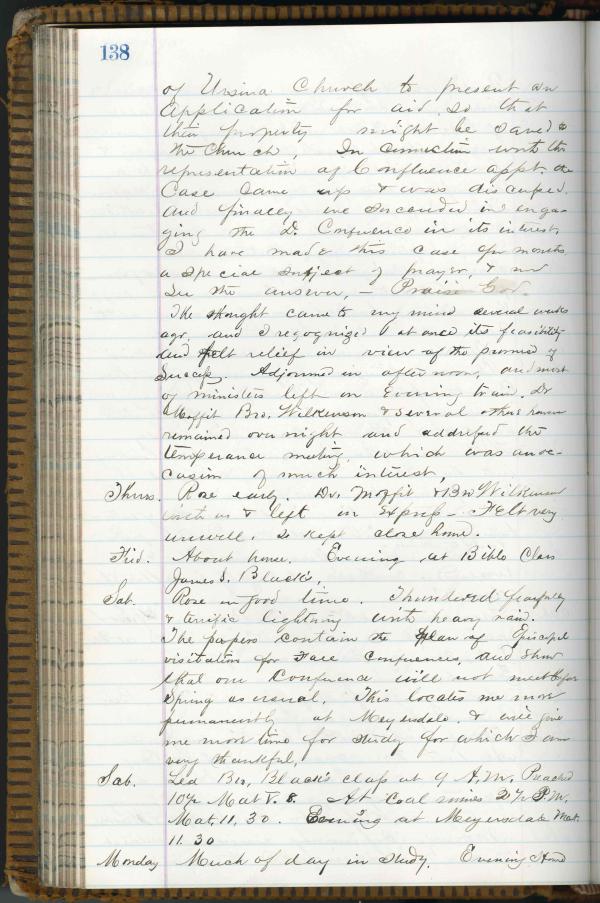 138
of Ursina Church to present an
application for aid, so that
their property might be saved to
the Church, In connection with the
representation of Confluence appt. the
Case Came up & was discussed,
and finally we succeeded in enga-
ging the D. Conference in its interest.
I have made this case for months
a special subject of prayer, & now
see the answer, — Praise God.
The thought came to my mind several weeks
ago, and I recognized at once its feasibility
and felt relief in view of the promise of
Success. Adjourned in afternoon, and most
of ministers left on Evening train. Dr
Moffit Bro. Wilkinson & several others however
remained over night and addressed the
temperance meeting, which was an oc-
casion of much interest,
Thurs. Rose early. Dr. Moffit & Bro Wilkinson
with us & left on Express — Felt very
unwell, so kept close home.
Frid. About home. Evening at Bible Class
James S. Black's,
Sat. Rose in good time. Thundered fearfully
& terrific lightning with heavy rain.
The papers contain the plan of Episcopal
visitation for Fall Conferences, and show
that our Conference will not meet before
Spring as usual. This locates me more
permanently at Meyersdale, & will give
me more time for study for which I am
very thankful,
Sab. Led Bro, Black's class at 9 A.M. Preached
10½ Mat V. 8. At Coal mines 2½ P.M.
Mat. 11. 30. Evening at Meyersdale Mat.
11. 30
Monday Much of day in study. Evening